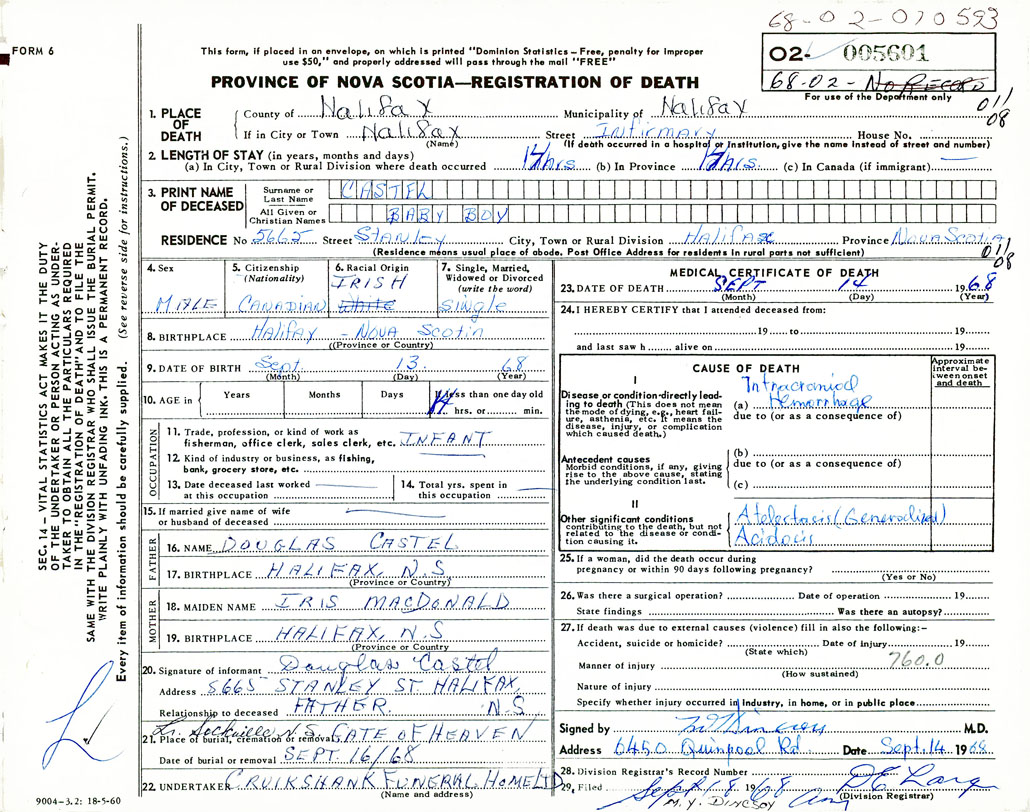 68-02-070593
FORM 6
This form, if placed in an envelope, on which is printed "Dominion Statistics – Free, penalty for improper
use $50," and properly addressed will pass through the mail "FREE"
02- 005601
68-02 - No RECORD
For use of the Department only
011
08
PROVINCE OF NOVA SCOTIA—REGISTRATION OF DEATH
1. PLACE OF DEATH
County of Halifax Municipality of Halifax
If in City or Town Halifax Street Infirmary House No.
(Name) (If death occurred in a hospital or institution, give the name instead of street and number)
2. LENGTH OF STAY (in years, months and days)
(a) In City, Town or Rural Division where death occurred 14 hrs (b) In Province 14 hrs. (c) In Canada (if immigrant) —
3. PRINT NAME OF DECEASED
Surname or Last Name CASTEL
All Given or Christian Names BABY BOY
RESIDENCE No 5665 Street STANLEY City, Town or Rural Division Halifax Province Nova Scotia
(Residence means usual place of abode. Post Office Address for residents in rural parts not sufficient)
011
08
4. Sex
MALE
5. Citizenship (Nationality)
CANADIAN
6. Racial Origin
IRISH
White
7. Single, Married, Widowed or Divorced (write the word)
Single
8. BIRTHPLACE Halifax – Nova Scotia
(Province or Country)
9. DATE OF BIRTH Sept. 13 68
(Month) (Day) (Year)
10. AGE in Years Months Days If less than one day old
14 hrs. or min.
OCCUPATION
11. Trade, profession, or kind of work as
fisherman, office clerk, sales clerk, etc. INFANT
12. Kind of industry or business, as fishing,
bank, grocery store, etc.
13. Date deceased last worked
at this occupation
14. Total yrs. spent in
this occupation
15. If married give name of wife
or husband of deceased
FATHER
16. NAME DOUGLAS CASTEL
17. BIRTHPLACE HALIFAX, N.S
(Province or Country)
MOTHER
18. MAIDEN NAME IRIS MACDONALD
19. BIRTHPLACE HALIFAX, N.S
(Province or Country)
20. Signature of informant Douglas Castel
Address 5665 STANLEY ST. HALIFAX,
Relationship to deceased FATHER. N.S
21. Place of burial, cremation or removal Lr. Sackville N.S. GATE OF HEAVEN
Date of burial or removal SEPT. 16/68
22. UNDERTAKER CRUIKSHANK FUNERAL HOME LTD
(Name and address)
MEDICAL CERTIFICATE OF DEATH
23. DATE OF DEATH SEPT 14 1968
(Month) (Day) (Year)
24. I HEREBY CERTIFY that I attended deceased from:
19 to 19
and last saw h alive on 19
CAUSE OF DEATH
Approximate interval between onset and death
I
Disease or condition directly leading to death (This does not mean
the mode of dying, e.g., heart failure, asthenia, etc. It means the
disease, injury, or complication
which caused death.)
(a) Intracranial Hemorrhage
due to (or as a consequence of)
Antecedent causes
Morbid conditions, if any, giving
rise to the above cause, stating
the underlying condition last.
(b)
due to (or as a consequence of)
(c)
II
Other significant conditions
contributing to the death, but not
related to the disease or condition causing it.
Atelectasis (Generalized)
Acidosis
25. If a woman, did the death occur during
pregnancy or within 90 days following pregnancy?
(Yes or No)
26. Was there a surgical operation? Date of operation 19
State findings Was there an autopsy?
27. If death was due to external causes (violence) fill in also the following:–
Accident, suicide or homicide? Date of injury 19
(State which)
Manner of injury 760.0
(How sustained)
Nature of injury
Specify whether injury occurred in industry, in home, or in public place
Signed by M.D.
Address 6450 Quinpool Rd. Date Sept. 14 1968
28. Division Registrar's Record Number
29. Filed Sept 18 1968
M. Y. DINCSOY
(Division Registrar)
SEC. 14 – VITAL STATISTICS ACT MAKES IT THE DUTY
OF THE UNDERTAKER OR PERSON ACTING AS UNDERTAKER TO OBTAIN ALL THE PARTICULARS REQUIRED
IN THE "REGISTRATION OF DEATH" AND TO FILE THE
SAME WITH THE DIVISION REGISTRAR WHO SHALL ISSUE THE BURIAL PERMIT.
WRITE PLAINLY WITH UNFADING INK. THIS IS A PERMANENT RECORD.
Every item of information should be carefully supplied. (See reverse side for instructions.)
9004-3.2: 18-5-60